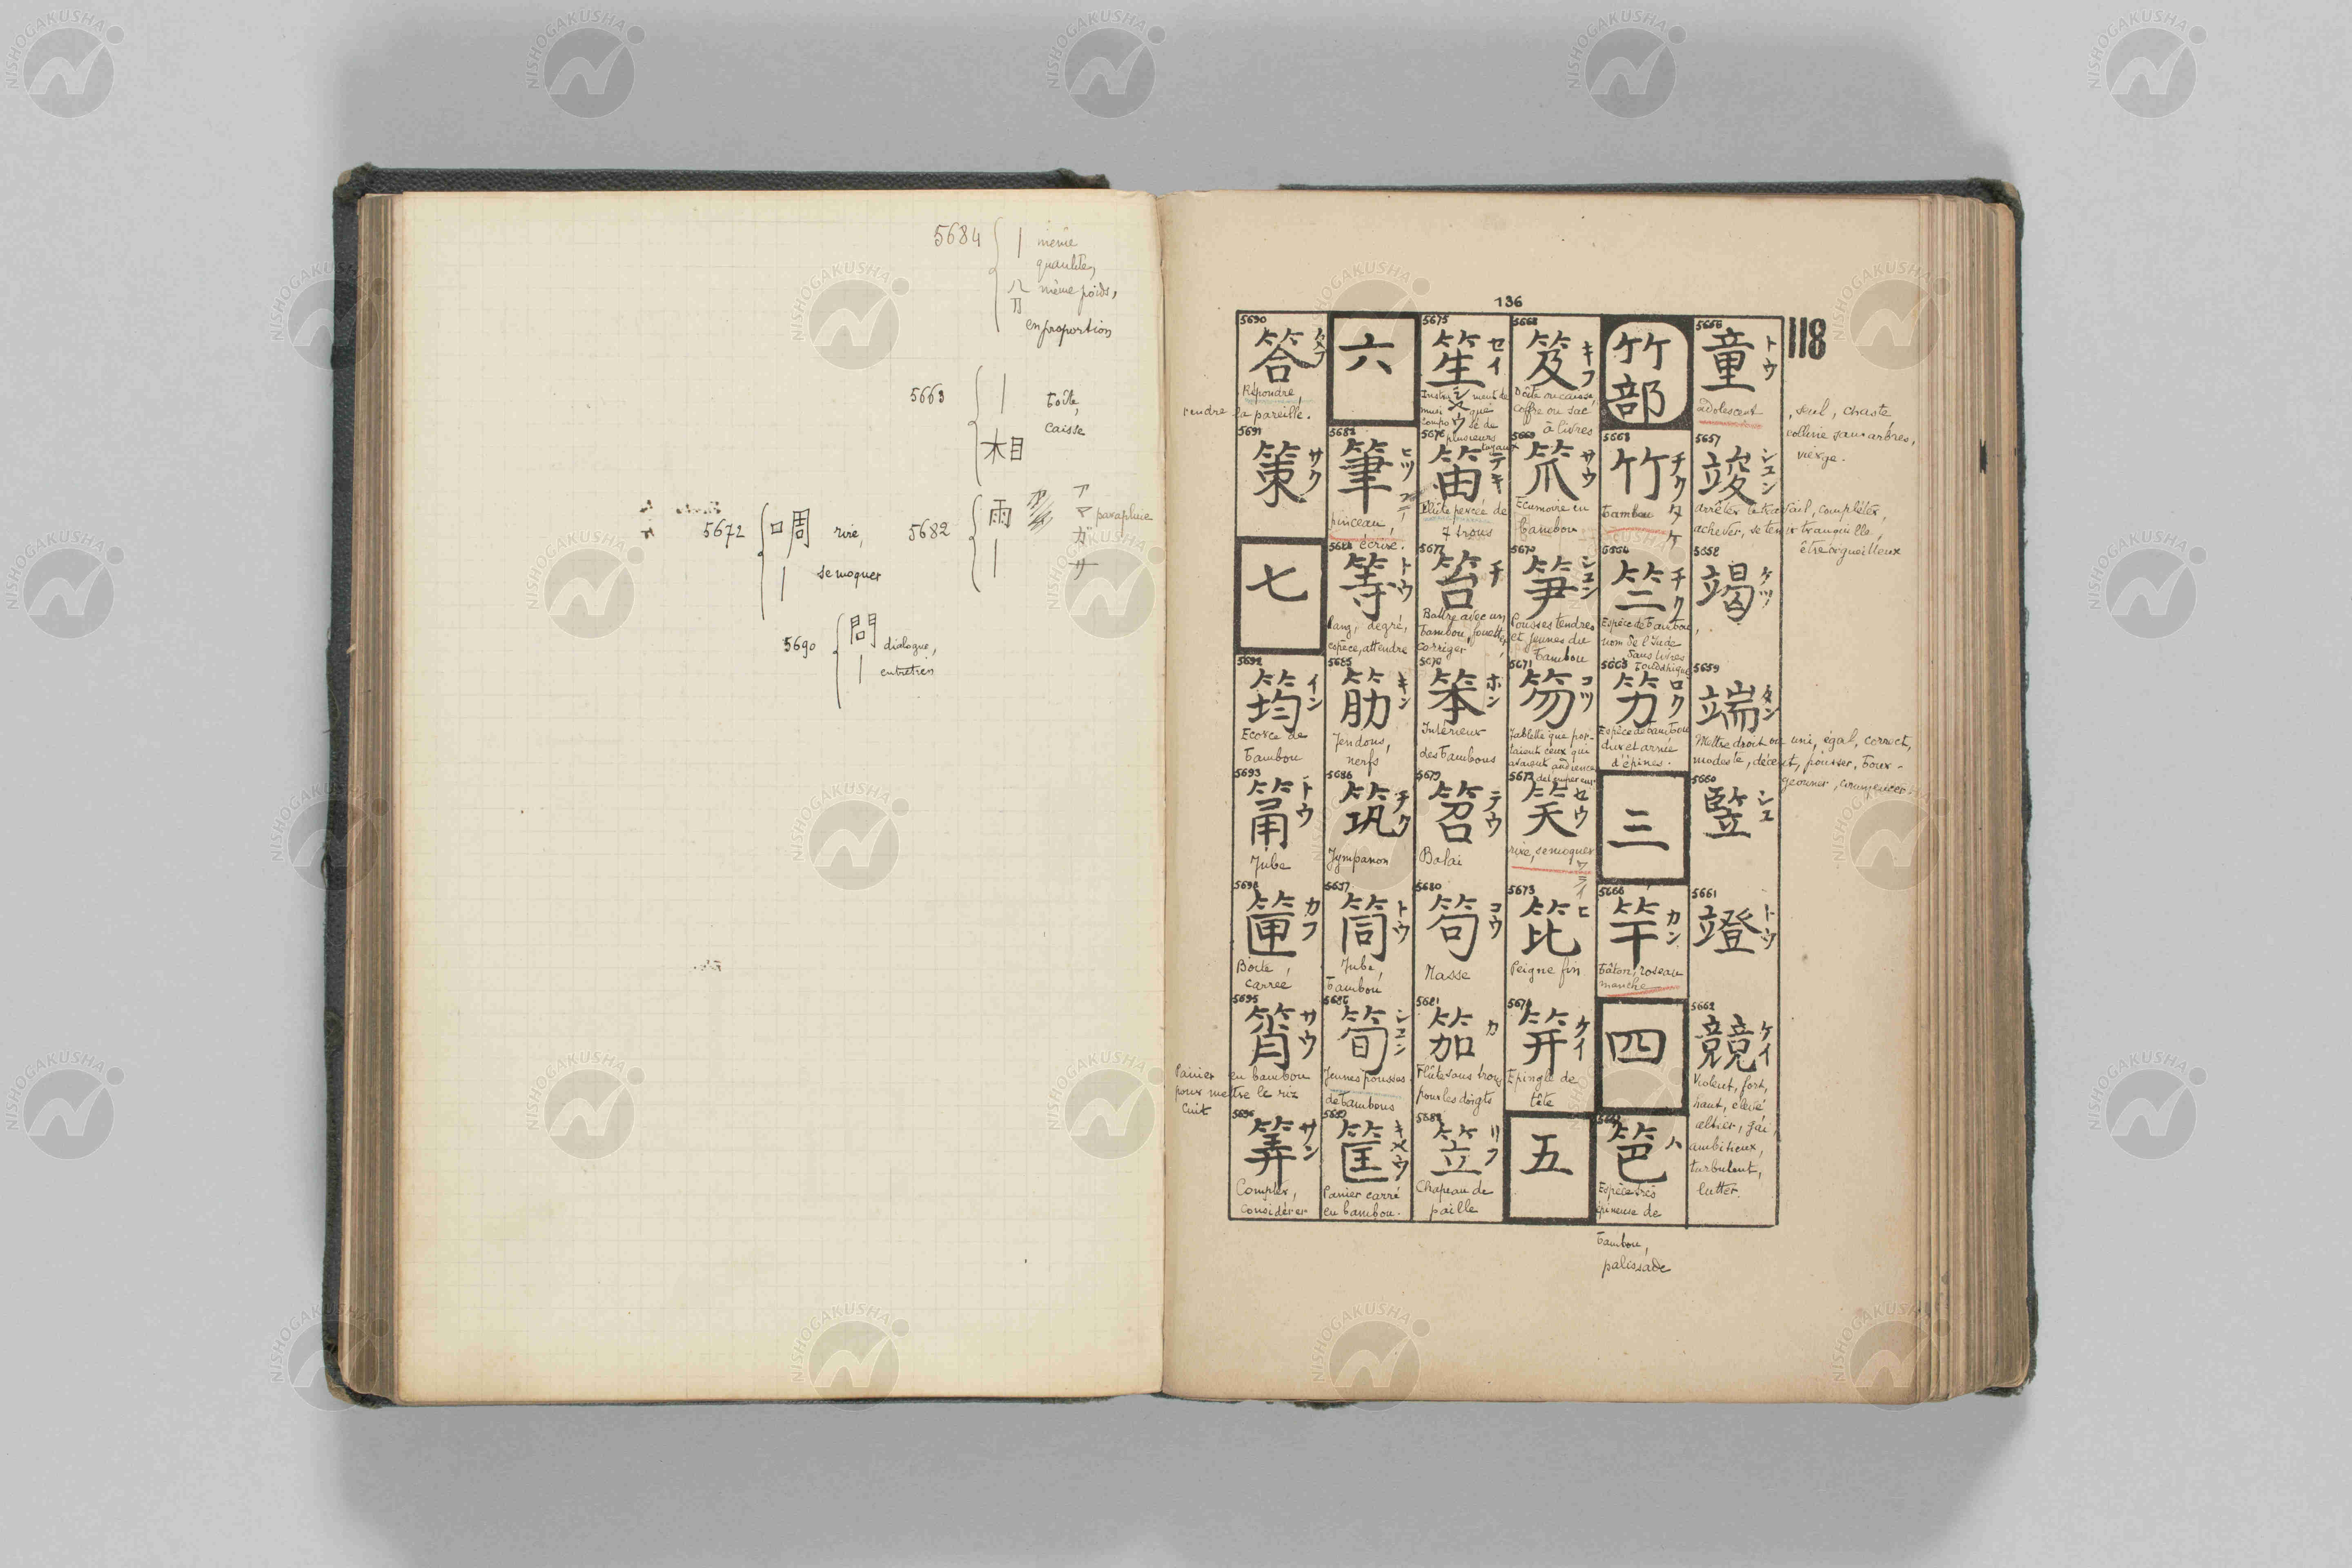 5684 { | même
qualité,
八刀 même poids,
en proportion
5663 { | boîte,
相 caisse
5672 { 口周 rire,
| se moquer
5682 { 雨 アマガサ parapluie
|
5690 { 問 dialogue,
| entretien
136
118
5656 童 トウ
adolescent, seul, chaste
colline sans arbres,
vierge.
5657 竣 シュン
arrêter le travail, compléter,
achever, se tenir tranquille,
être orgueilleux
5658 竭 ケツ
5659 端 タン
Mettre droit ou uni, égal, correct,
modeste, décent, pousser, bour-
geonner, commencer.
5660 竪 シユ
5661 䔲 トウ
5662 競 ケイ
Violent, fort,
haut, élevé
altier, gai,
ambitieux,
turbulent,
lutter.
竹部
5663 竹 チク タケ
bambou
5664 竺 チク
Espèce de bambou,
nom de l'Inde
dans livres
bouddhiques
5665 竻 ロク
Espèce de bambou
dur et armé
d'épines.
三
5666 竿 カン
bâton, roseau
manche
四
5667 笆 ハ
Espèce très
épineuse de
bambou,
palissade
5668 笈 キフ
Boîte ou caisse,
coffre ou sac
à livres
5669 笊 サウ
Ecumoire en
bambou
5670 笋 シュン
Pousses tendres
et jeunes du
bambou
5671 笏 コツ
Tablette que por-
taient ceux qui
avaient audience
de l'empereur
5672 笑 セウ
rire, se moquer
ワライ
5673 笓 ヒ
Peigne fin
5674 笄 ケイ
Epingle de
tête
五
5675 笙 セイ シヤウ
Instrument de
musique
composé de
plusieurs
tuyaux
5676 笛 テキ
Flûte percée de
7 trous
5677 笞 チ
Battre avec un
bambou, fouetter,
corriger
5678 笨 ホン
Intérieur
des bambous
5679 笤 テウ
Balai
5680 笱 コウ
Nasse
5681 笳 カ
Flûte sans trous
pour les doigts
5682 笠 リフ
Chapeau de
paille
六
5683 筆 ヒツ
pinceau,
écrire.
5684 等 トウ
Rang, degré,
espèce, attendre
5685 筋 キン
Tendons,
nerfs
5686 筑 チク
Tympanon
5687 筒 トウ
Tube,
bambou
5688 筍 シユン
Jeunes pousses
de bambous
5689 筐 キヤウ
Panier carré
en bambou.
5690 答 タフ
Répondre,
rendre la pareille.
5691 策 サク
七
5692 筠 イン
Ecorce de
bambou
5693 筩 トウ
Tube
5694 筪 カフ
Boîte,
carrée
5695 筲 サウ
Panier en bambou
pour mettre le riz
cuit
5696 筭 サン
Compter,
considérer